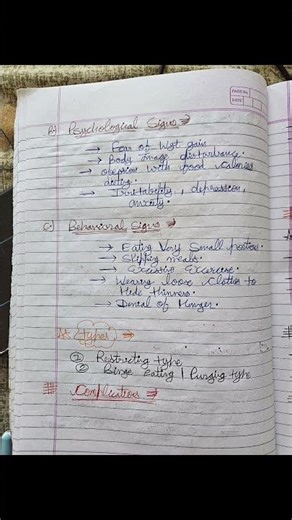 PAGE No.
DATE
B) Psychological Signs ⇒
→ Fear of Wgt gain
→ Body Image disturbance.
→ obession with food calories
dieting.
→ Irritability, depression,
anxiety.
C) Behavioural Signs ⇒
→ Eating Very Small portion.
→ Skipping meals.
→ Excessive Excercise.
→ Wearing loose clothes to
Hide thinness.
→ Denial of Hunger.
Types ⇒
① Restricting type
② Binge eating / Purging type
Complications ⇒